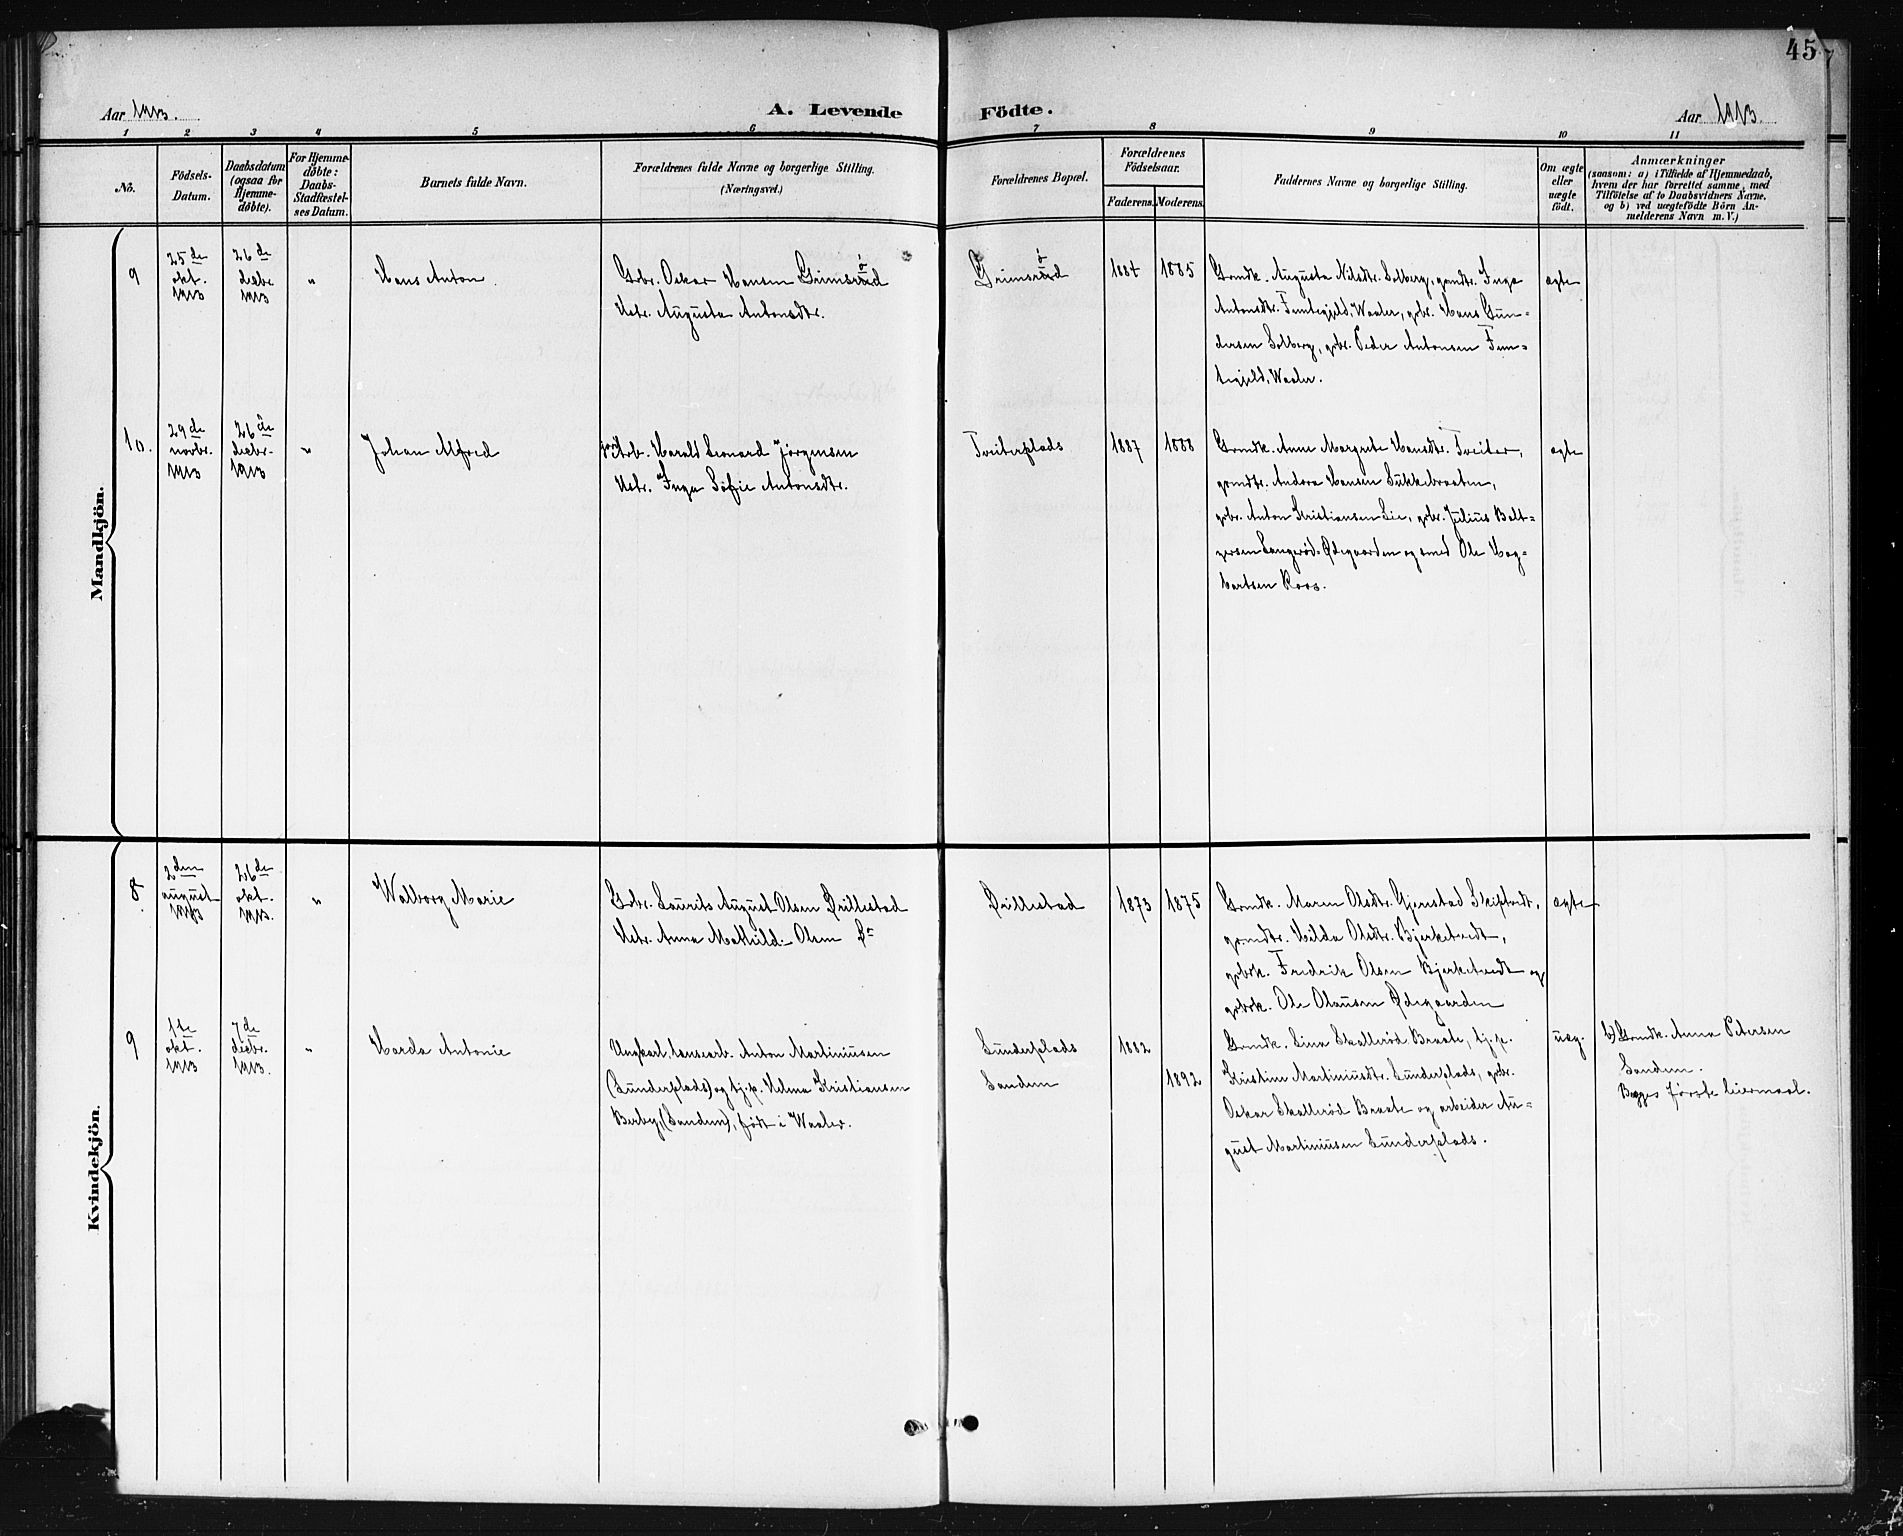 45
Aar 1913.
A. Levende Födte.
Aar 1913.
1 2 3 4 5 6 7 8 9 10 11
No.
Födsels-
Datum.
Daabsdatum
(ogsaa for
Hjemme-
döbte).
For Hjemme-
döbte:
Daabs-
Stadfæstel-
ses Datum.
Barnets fulde Navn.
Forældrenes fulde Navne og borgerlige Stilling.
(Næringsvei.)
Forældrenes Bopæl.
Forældrenes
Födselsaar.
Faderens. Moderens.
Faddernes Navne og borgerlige Stilling.
Om ægte
eller
uægte
födt.
Anmærkninger
(saasom: a) i Tilfælde af Hjemmedaab,
hvem der har forrettet samme, med
Tilföielse af to Daabsvidners Navne,
og b) ved uægtefödte Börn An-
melderens Navn m. V.)
Mandkjön.
9
25de
okt.
1913
26de
decbr.
1913
"
Hans Anton
Gbr. Oskar Hansen Grimsrød
Hstr. Augusta Antonsdtr.
Grimsrød
1884
1885
Grmdk. Augusta Nilsdtr. Solberg, grmdtr. Inga
Antonsdtr. Femtegjeld, Waaler, gbr. Hans Gun-
dersen Solberg, gbr. Peder Antonsen Fem-
tegjeld, Waaler.
ægte
10.
29de
novbr.
1913
26de
decbr.
1913
"
Johan Alfred
Harald Leonard Jörgensen
Hstr. Inga Sofie Antonsdtr.
Tveiterplads
1887
1888
Grmdk. Anne Margrete Hansdtr. Tveiter,
grmdtr. Andora Hansen Sukkebraaten,
gbr. Anton Kristiansen Lie, gbr. Julius Balt-
zersen Langerød-Ødegaarden og smed Ole Hag-
bartsen Roos.
ægte
Kvindekjön.
8
2den
august
1913
26de
okt.
1913.
"
Walborg Marie
Gbr. Laurits August Olsen Brillestad
Hstr. Anna Mathilde Olsen
Brillestad
1873
1875
Grmdk. Maren Olsdtr. Gjerestad Skiptvedt,
grmdtr. Hilda Olsdtr. Bjerketvedt,
Fredrik Olsen Bjerketvedt og
Ole Olausen Ødegaarden
ægte
9
1ste
okt.
1913
7de
decbr.
1913.
"
Harda Antonie
Ungkarl, Anton Martiniusen
(Lunderplads) og tj.p. Helma Kristiansen
Berby, (Sanden), født i Waaler.
Lunderplads
Sanden
1882
1892
Grmdk. Lina Skallerød Braate, tj.p.
Kristine Martiniusdtr. Lunderplads, gbr.
Oskar Skallerød Braate og arbeider Au-
gust Martiniusen Lunderplads.
uæg.
b) Grmdk. Anna Petersen
Sanden.
Begges første leiermaal.